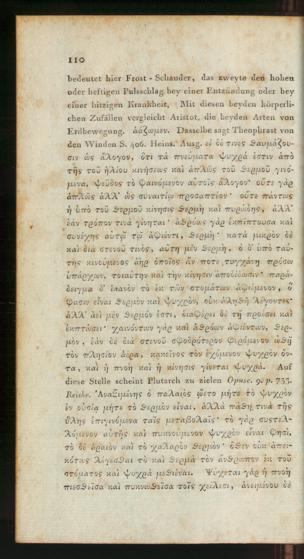 110
bedeutet hier Frost-Schauder, das zweyte den hohen
oder heftigen Pulsschlag bey einer Entzündung oder bey
einer hitzigen Krankheit. Mit diesen beyden körperli-
chen Zufällen vergleicht Aristot. die beyden Arten von
Erdbewegung. Dasselbe sagt Theophrast von
den Winden S. 406. Heins. Ausg. εἰ δέ τινες θαυμάζου-
σιν ὡς ἄλογον, ὅτι τὰ πνεύματα ψυχρά ἐστιν ἀπὸ
τῆς τοῦ ἡλίου κινήσεως καὶ ἁπλῶς τοῦ θερμοῦ γινό-
μενα, ψεῦδος τὸ φαινόμενον αὐτοῖς ἄλογον· οὔτε γὰρ
ἁπλῶς ἀλλ' ὡς συναιτίῳ προσαπτέον· οὔτε πάντως
ἡ ὑπὸ τοῦ θερμοῦ κίνησις θερμὴ καὶ πυρώδης, ἀλλ'
ἐὰν τρόπον τινὰ γίνηται· ἀθρόως γὰρ ἐκπίπτουσα καὶ
συνεχὴς αὐτῷ τῷ ἀφιέντι, θερμή· κατὰ μικρὸν δὲ
καὶ διὰ στενοῦ τινὸς, αὕτη μὲν θερμὴ, ὁ δ' ὑπὸ ταύ-
της κινούμενος ἀὴρ ὁποῖος ἄν ποτε τυγχάνῃ πρόσω
ὑπάρχων, τοιαύτην καὶ τὴν κίνησιν ἀποδίδωσιν· παρά-
δειγμα δ' ἱκανὸν τὸ ἐκ τῶν στομάτων ἀφιέμενον, ὅ
φασιν εἶναι θερμὸν καὶ ψυχρὸν, οὐκ ἀληθῆ λέγοντες·
ἀλλ' ἀεὶ μὲν θερμόν ἐστι, διαφέρει δὲ τῇ προέσει καὶ
ἐκπτώσει· χαινόντων γὰρ καὶ ἀθρόων ἀφιέντων, θερ-
μὸν, ἐὰν δὲ διὰ στενοῦ σφοδρότερον φερόμενον ὠθῇ
τὸν πλησίον ἀέρα, κἀκεῖνος τὸν ἐχόμενον ψυχρὸν ὄν-
τα, καὶ ἡ πνοὴ καὶ ἡ κίνησις γίνεται ψυχρά. Auf
diese Stelle scheint Plutarch zu zielen Opusc. 9. p. 753.
Reiske. Ἀναξιμένης ὁ παλαιὸς ᾤετο μήτε τὸ ψυχρὸν
ἐν οὐσίᾳ μήτε τὸ θερμὸν εἶναι, ἀλλὰ πάθη τινὰ τῆς
ὕλης ἐπιγινόμενα ταῖς μεταβολαῖς· τὸ γὰρ συστελ-
λόμενον αὐτῆς καὶ πυκνούμενον ψυχρὸν εἶναι φησί,
τὸ δὲ ἀραιὸν καὶ τὸ χαλαρὸν θερμόν· ὅθεν οὐκ ἀπει-
κότως λέγεσθαι τὸ καὶ θερμὰ τὸν ἄνθρωπον ἐκ τοῦ
στόματος καὶ ψυχρὰ μεθιέναι. Ψύχεται γὰρ ἡ πνοὴ
πιεσθεῖσα καὶ πυκνωθεῖσα τοῖς χείλεσι, ἀνειμένου δὲ